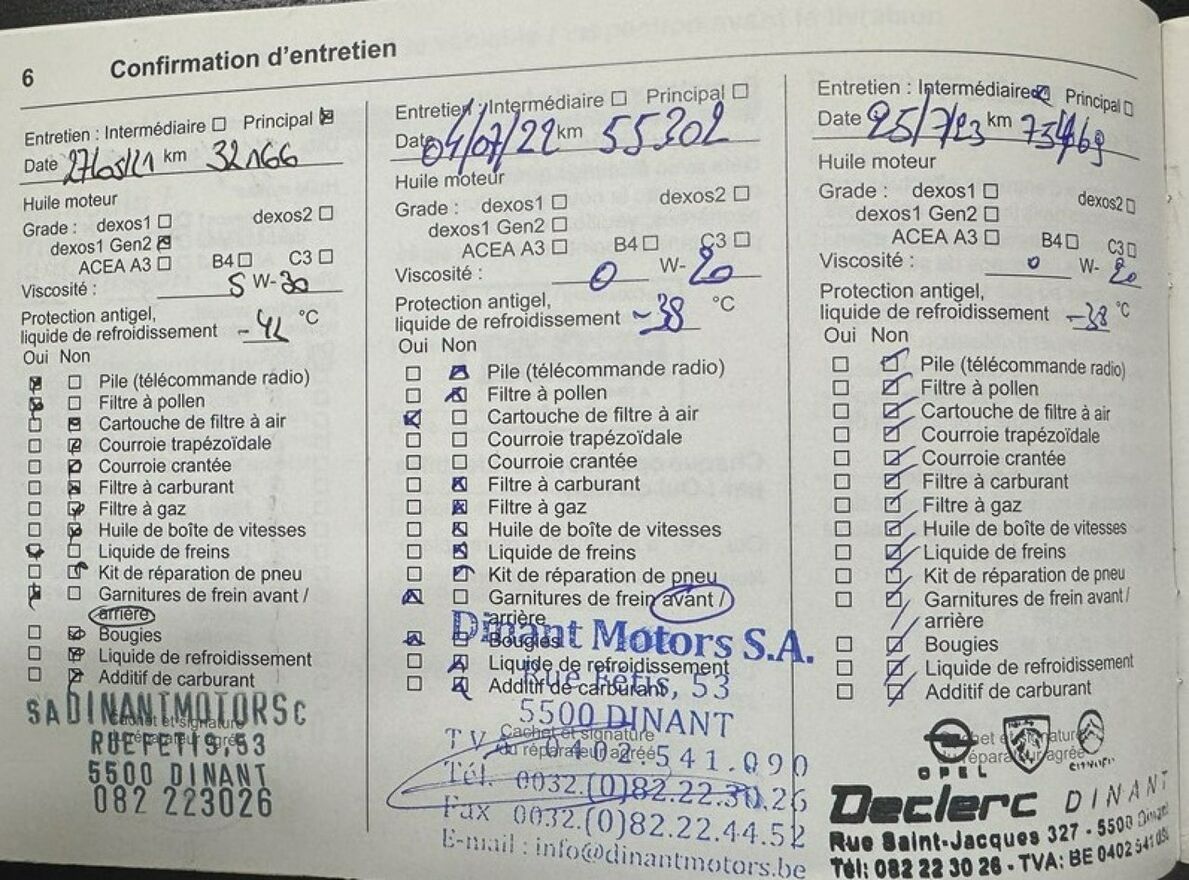 6 Confirmation d'entretien
Entretien : Intermédiaire ☐ Principal ☒
Date 27/05/21 km 32166
Huile moteur
Grade : dexos1 ☐ dexos2 ☐
dexos1 Gen2 ☒
ACEA A3 ☐ B4 ☐ C3 ☐
Viscosité : 5 W-30
Protection antigel,
liquide de refroidissement -42 °C
Oui Non
☒ ☐ Pile (télécommande radio)
☒ ☐ Filtre à pollen
☐ ☒ Cartouche de filtre à air
☐ ☒ Courroie trapézoïdale
☐ ☒ Courroie crantée
☐ ☒ Filtre à carburant
☐ ☒ Filtre à gaz
☐ ☒ Huile de boîte de vitesses
☒ ☐ Liquide de freins
☐ ☒ Kit de réparation de pneu
☒ ☐ Garnitures de frein avant /
arrière
☐ ☒ Bougies
☐ ☒ Liquide de refroidissement
☐ ☒ Additif de carburant
Cachet et signature
du réparateur agréé
SA DINANTMOTORS
RUE FETIS, 53
5500 DINANT
082 223026
Entretien : Intermédiaire ☐ Principal ☐
Date 04/07/22 km 55302
Huile moteur
Grade : dexos1 ☐ dexos2 ☐
dexos1 Gen2 ☐
ACEA A3 ☐ B4 ☐ C3 ☐
Viscosité : 0 W- 20
Protection antigel,
liquide de refroidissement -38 °C
Oui Non
☐ ☒ Pile (télécommande radio)
☐ ☒ Filtre à pollen
☒ ☐ Cartouche de filtre à air
☐ ☐ Courroie trapézoïdale
☐ ☐ Courroie crantée
☐ ☒ Filtre à carburant
☐ ☒ Filtre à gaz
☐ ☒ Huile de boîte de vitesses
☐ ☒ Liquide de freins
☐ ☒ Kit de réparation de pneu
☒ ☐ Garnitures de frein avant /
arrière
☒ ☐ Bougies
☐ ☒ Liquide de refroidissement
☐ ☒ Additif de carburant
Cachet et signature
du réparateur agréé
Dinant Motors S.A.
Rue Fétis, 53
5500 DINANT
TV 0402.541.090
Tél. 0032.(0)82.22.30.26
Fax 0032.(0)82.22.44.52
E-mail : info@dinantmotors.be
Entretien : Intermédiaire ☒ Principal ☐
Date 25/7/23 km
Huile moteur
Grade : dexos1 ☐ dexos2 ☐
dexos1 Gen2 ☐
ACEA A3 ☐ B4 ☐ C3 ☐
Viscosité : 0 W- 20
Protection antigel,
liquide de refroidissement -38 °C
Oui Non
☐ ☒ Pile (télécommande radio)
☐ ☒ Filtre à pollen
☐ ☒ Cartouche de filtre à air
☐ ☒ Courroie trapézoïdale
☐ ☒ Courroie crantée
☐ ☒ Filtre à carburant
☐ ☒ Filtre à gaz
☐ ☒ Huile de boîte de vitesses
☐ ☒ Liquide de freins
☐ ☒ Kit de réparation de pneu
☐ ☒ Garnitures de frein avant /
arrière
☐ ☒ Bougies
☐ ☒ Liquide de refroidissement
☐ ☒ Additif de carburant
Cachet et signature
du réparateur agréé
OPEL CITROËN
Declerc DINANT
Rue Saint-Jacques 327 - 5500 Dinant
Tél: 082 22 30 26 - TVA: BE 0402 541 090